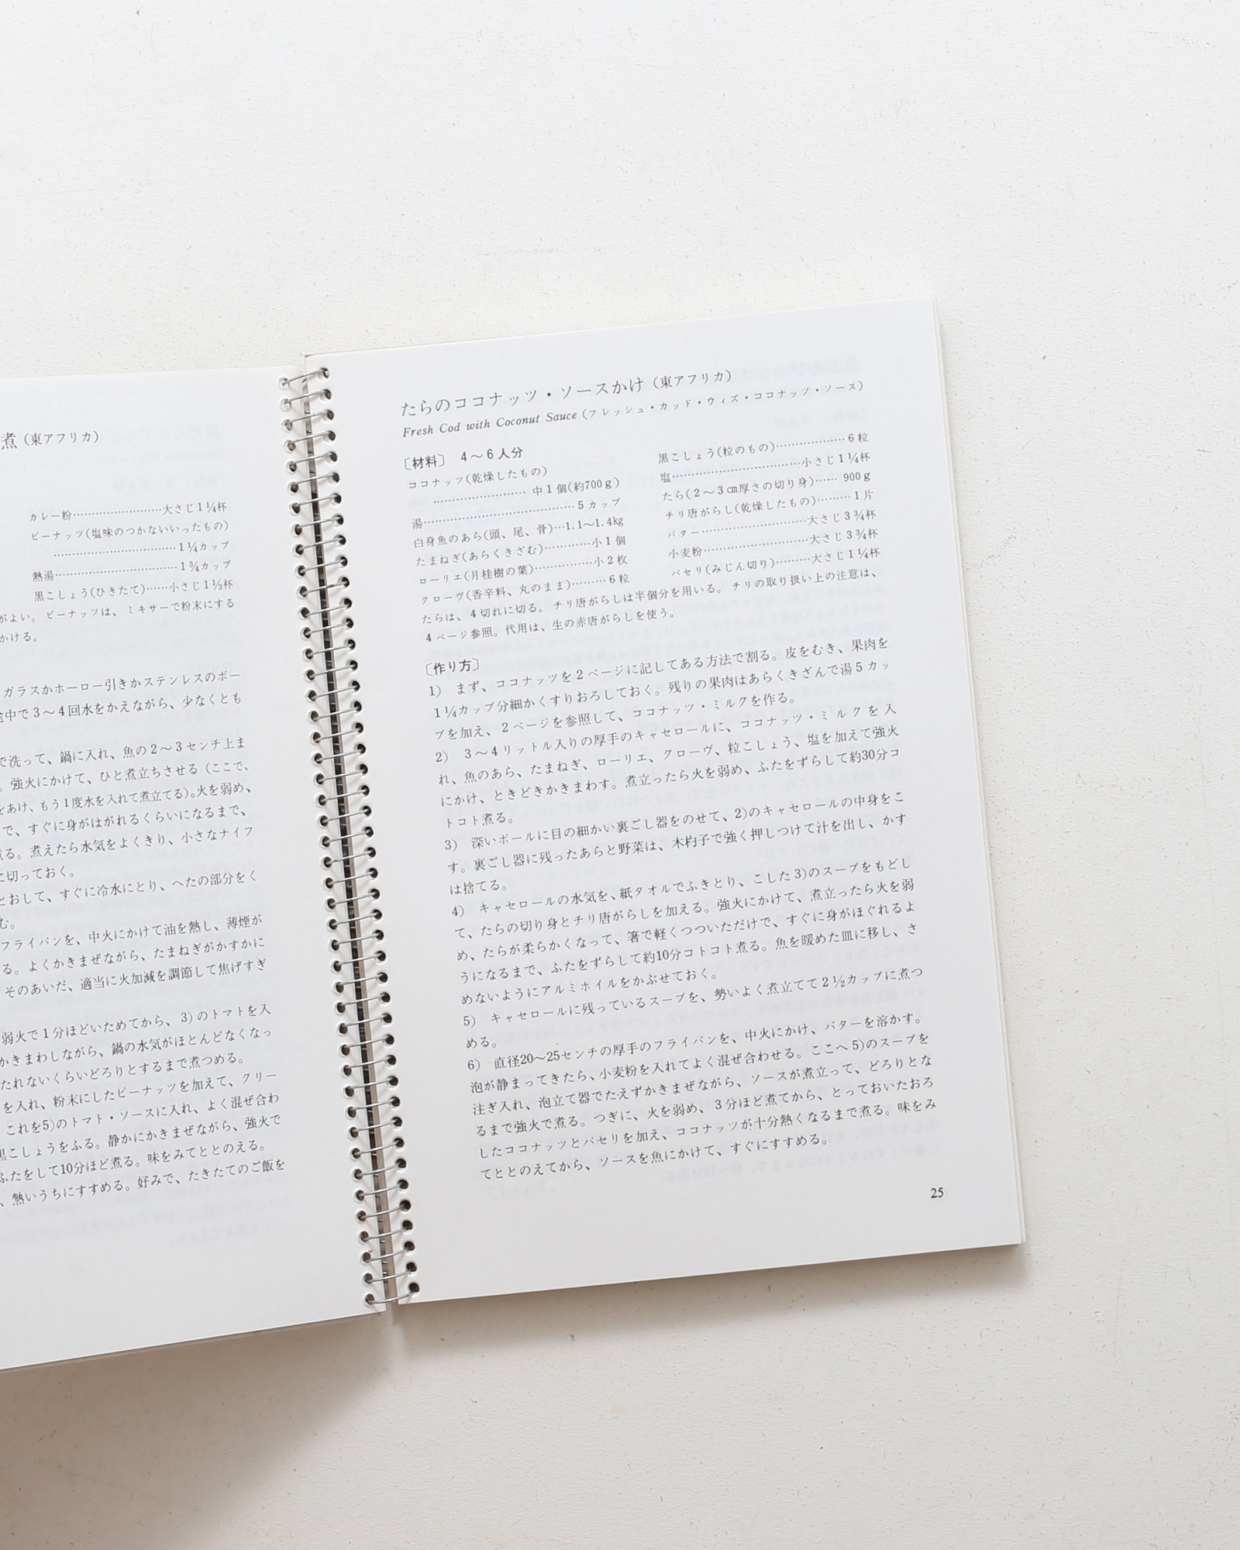 煮（東アフリカ）
カレー粉……………大さじ1¼杯
ピーナッツ(塩味のつかないいったもの)
……………………………1¼カップ
熱湯……………………………1¾カップ
黒こしょう(ひきたて)……小さじ1⅓杯
がよい。 ピーナッツは、ミキサーで粉末にする
かける。
ガラスかホーロー引きかステンレスのボー
途中で3～4回水をかえながら、少なくとも
で洗って、鍋に入れ、魚の2～3センチ上ま
。強火にかけて、ひと煮立ちさせる（ここで、
をあけ、もう1度水を入れて煮立てる)。火を弱め、
で、すぐに身がはがれるくらいになるまで、
煮る。煮えたら水気をよくきり、小さなナイフ
に切っておく。
とおして、すぐに冷水にとり、へたの部分をく
む。
フライパンを、中火にかけて油を熱し、薄煙が
る。よくかきまぜながら、たまねぎがかすかに
そのあいだ、適当に火加減を調節して焦げすぎ
弱火で1分ほどいためてから、3)のトマトを入
かきまわしながら、鍋の水気がほとんどなくなっ
たれないくらいどろりとするまで煮つめる。
を入れ、粉末にしたピーナッツを加えて、クリー
これを5)のトマト・ソースに入れ、よく混ぜ合わ
黒こしょうをふる。静かにかきまぜながら、強火で
ふたをして10分ほど煮る。味をみてととのえる。
、熱いうちにすすめる。好みで、たきたてのご飯を
たらのココナッツ・ソースかけ（東アフリカ）
Fresh Cod with Coconut Sauce (フレッシュ・カッド・ウィズ・ココナッツ・ソース)
〔材料〕 4～6人分
ココナッツ(乾燥したもの)
…………………… 中1個(約700g)
湯……………………………………5カップ
白身魚のあら(頭、尾、骨)…1.1～1.4kg
たまねぎ(あらくきざむ)…………小1個
ローリエ(月桂樹の葉)……………小2枚
クローヴ(香辛料、丸のまま)………6粒
黒こしょう(粒のもの)………………6粒
塩……………………………小さじ1¼杯
たら(2～3㎝厚さの切り身)…… 900g
チリ唐がらし(乾燥したもの)………1片
バター…………………………大さじ3¾杯
小麦粉…………………………大さじ3¾杯
パセリ(みじん切り)………大さじ1¼杯
たらは、4切れに切る。チリ唐がらしは半個分を用いる。チリの取り扱い上の注意は、
4ページ参照。代用は、生の赤唐がらしを使う。
〔作り方〕
1) まず、ココナッツを2ページに記してある方法で割る。皮をむき、果肉を
1¼カップ分細かくすりおろしておく。残りの果肉はあらくきざんで湯5カッ
プを加え、2ページを参照して、ココナッツ・ミルクを作る。
2) 3～4リットル入りの厚手のキャセロールに、ココナッツ・ミルクを入
れ、魚のあら、たまねぎ、ローリエ、クローヴ、粒こしょう、塩を加えて強火
にかけ、ときどきかきまわす。煮立ったら火を弱め、ふたをずらして約30分コ
トコト煮る。
3) 深いボールに目の細かい裏ごし器をのせて、2)のキャセロールの中身をこ
す。裏ごし器に残ったあらと野菜は、木杓子で強く押しつけて汁を出し、かす
は捨てる。
4) キャセロールの水気を、紙タオルでふきとり、こした3)のスープをもどし
て、たらの切り身とチリ唐がらしを加える。強火にかけて、煮立ったら火を弱
め、たらが柔らかくなって、箸で軽くつついただけで、すぐに身がほぐれるよ
うになるまで、ふたをずらして約10分コトコト煮る。魚を暖めた皿に移し、さ
めないようにアルミホイルをかぶせておく。
5) キャセロールに残っているスープを、勢いよく煮立てて2½カップに煮つ
める。
6) 直径20～25センチの厚手のフライパンを、中火にかけ、バターを溶かす。
泡が静まってきたら、小麦粉を入れてよく混ぜ合わせる。ここへ5)のスープを
注ぎ入れ、泡立て器でたえずかきまぜながら、ソースが煮立って、どろりとな
るまで強火で煮る。つぎに、火を弱め、3分ほど煮てから、とっておいたおろ
したココナッツとパセリを加え、ココナッツが十分熱くなるまで煮る。味をみ
てととのえてから、ソースを魚にかけて、すぐにすすめる。
25